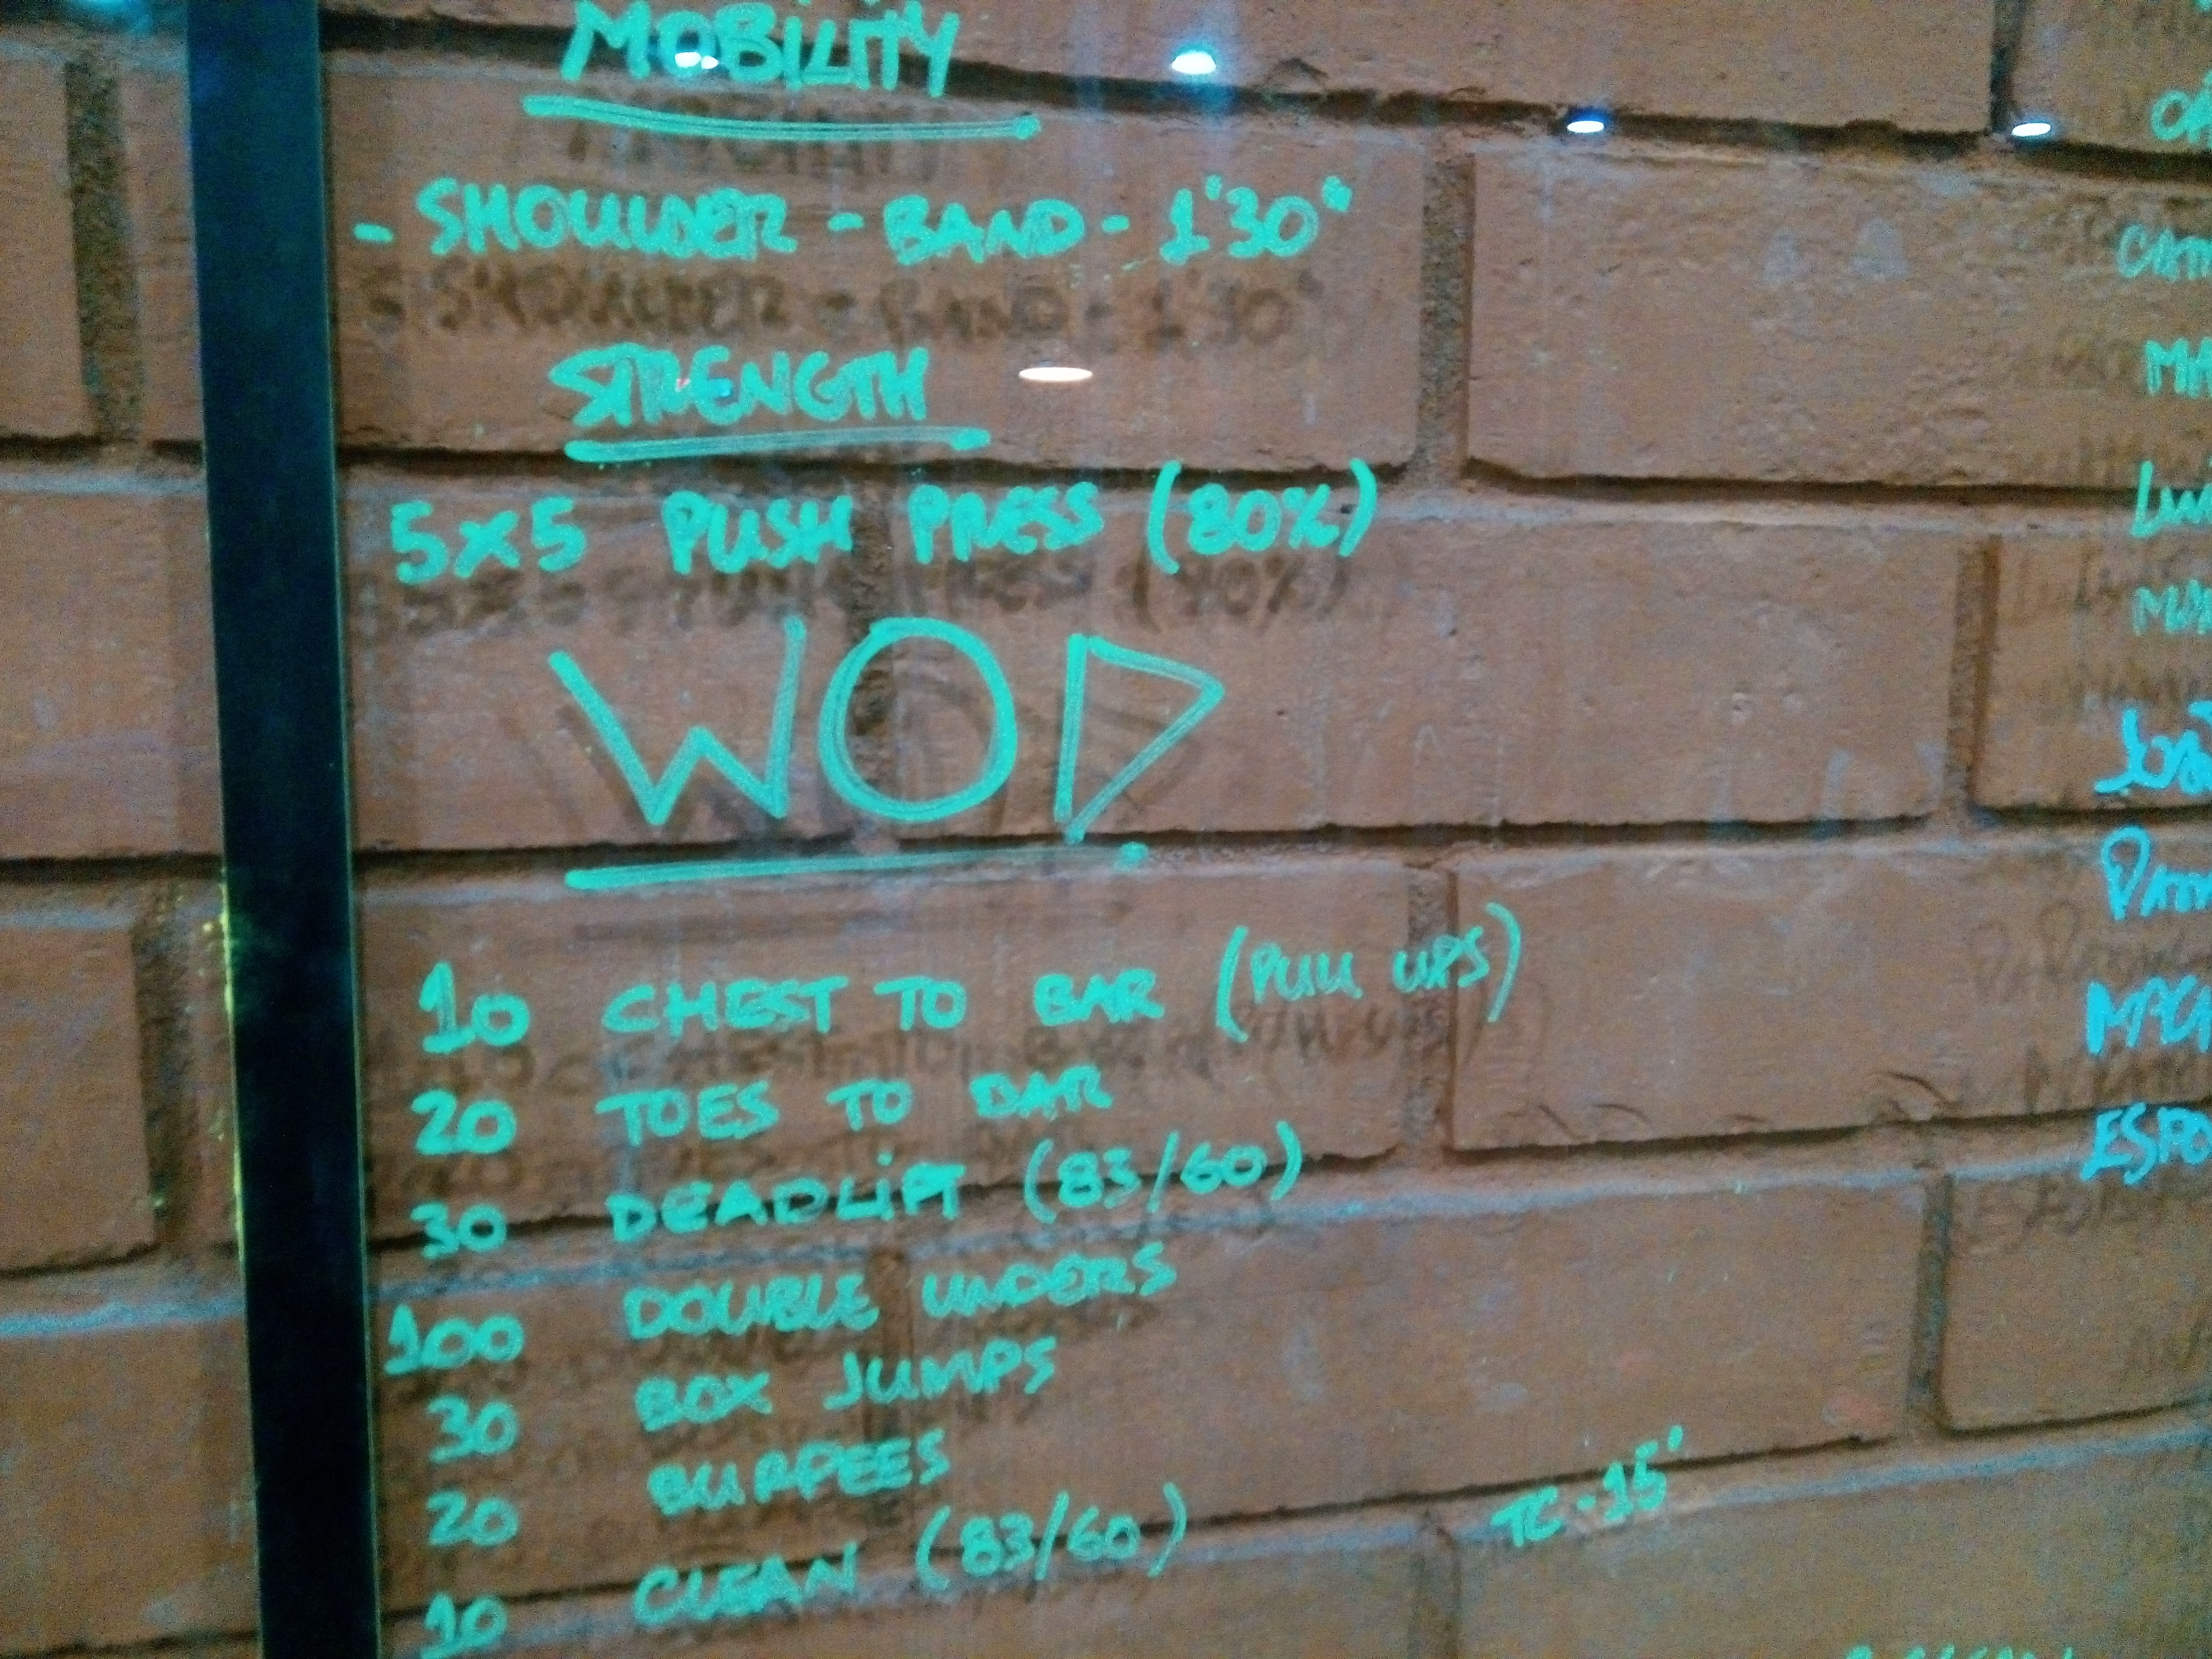 MOBILITY
- SHOULDER - BAND - 1'30"
STRENGTH
5x5 PUSH PRESS (80%)
WOD
10 CHEST TO BAR (PULL UPS)
20 TOES TO BAR
30 DEADLIFT (83/60)
100 DOUBLE UNDERS
30 BOX JUMPS
20 BURPEES
10 CLEAN (83/60)
TC - 15'